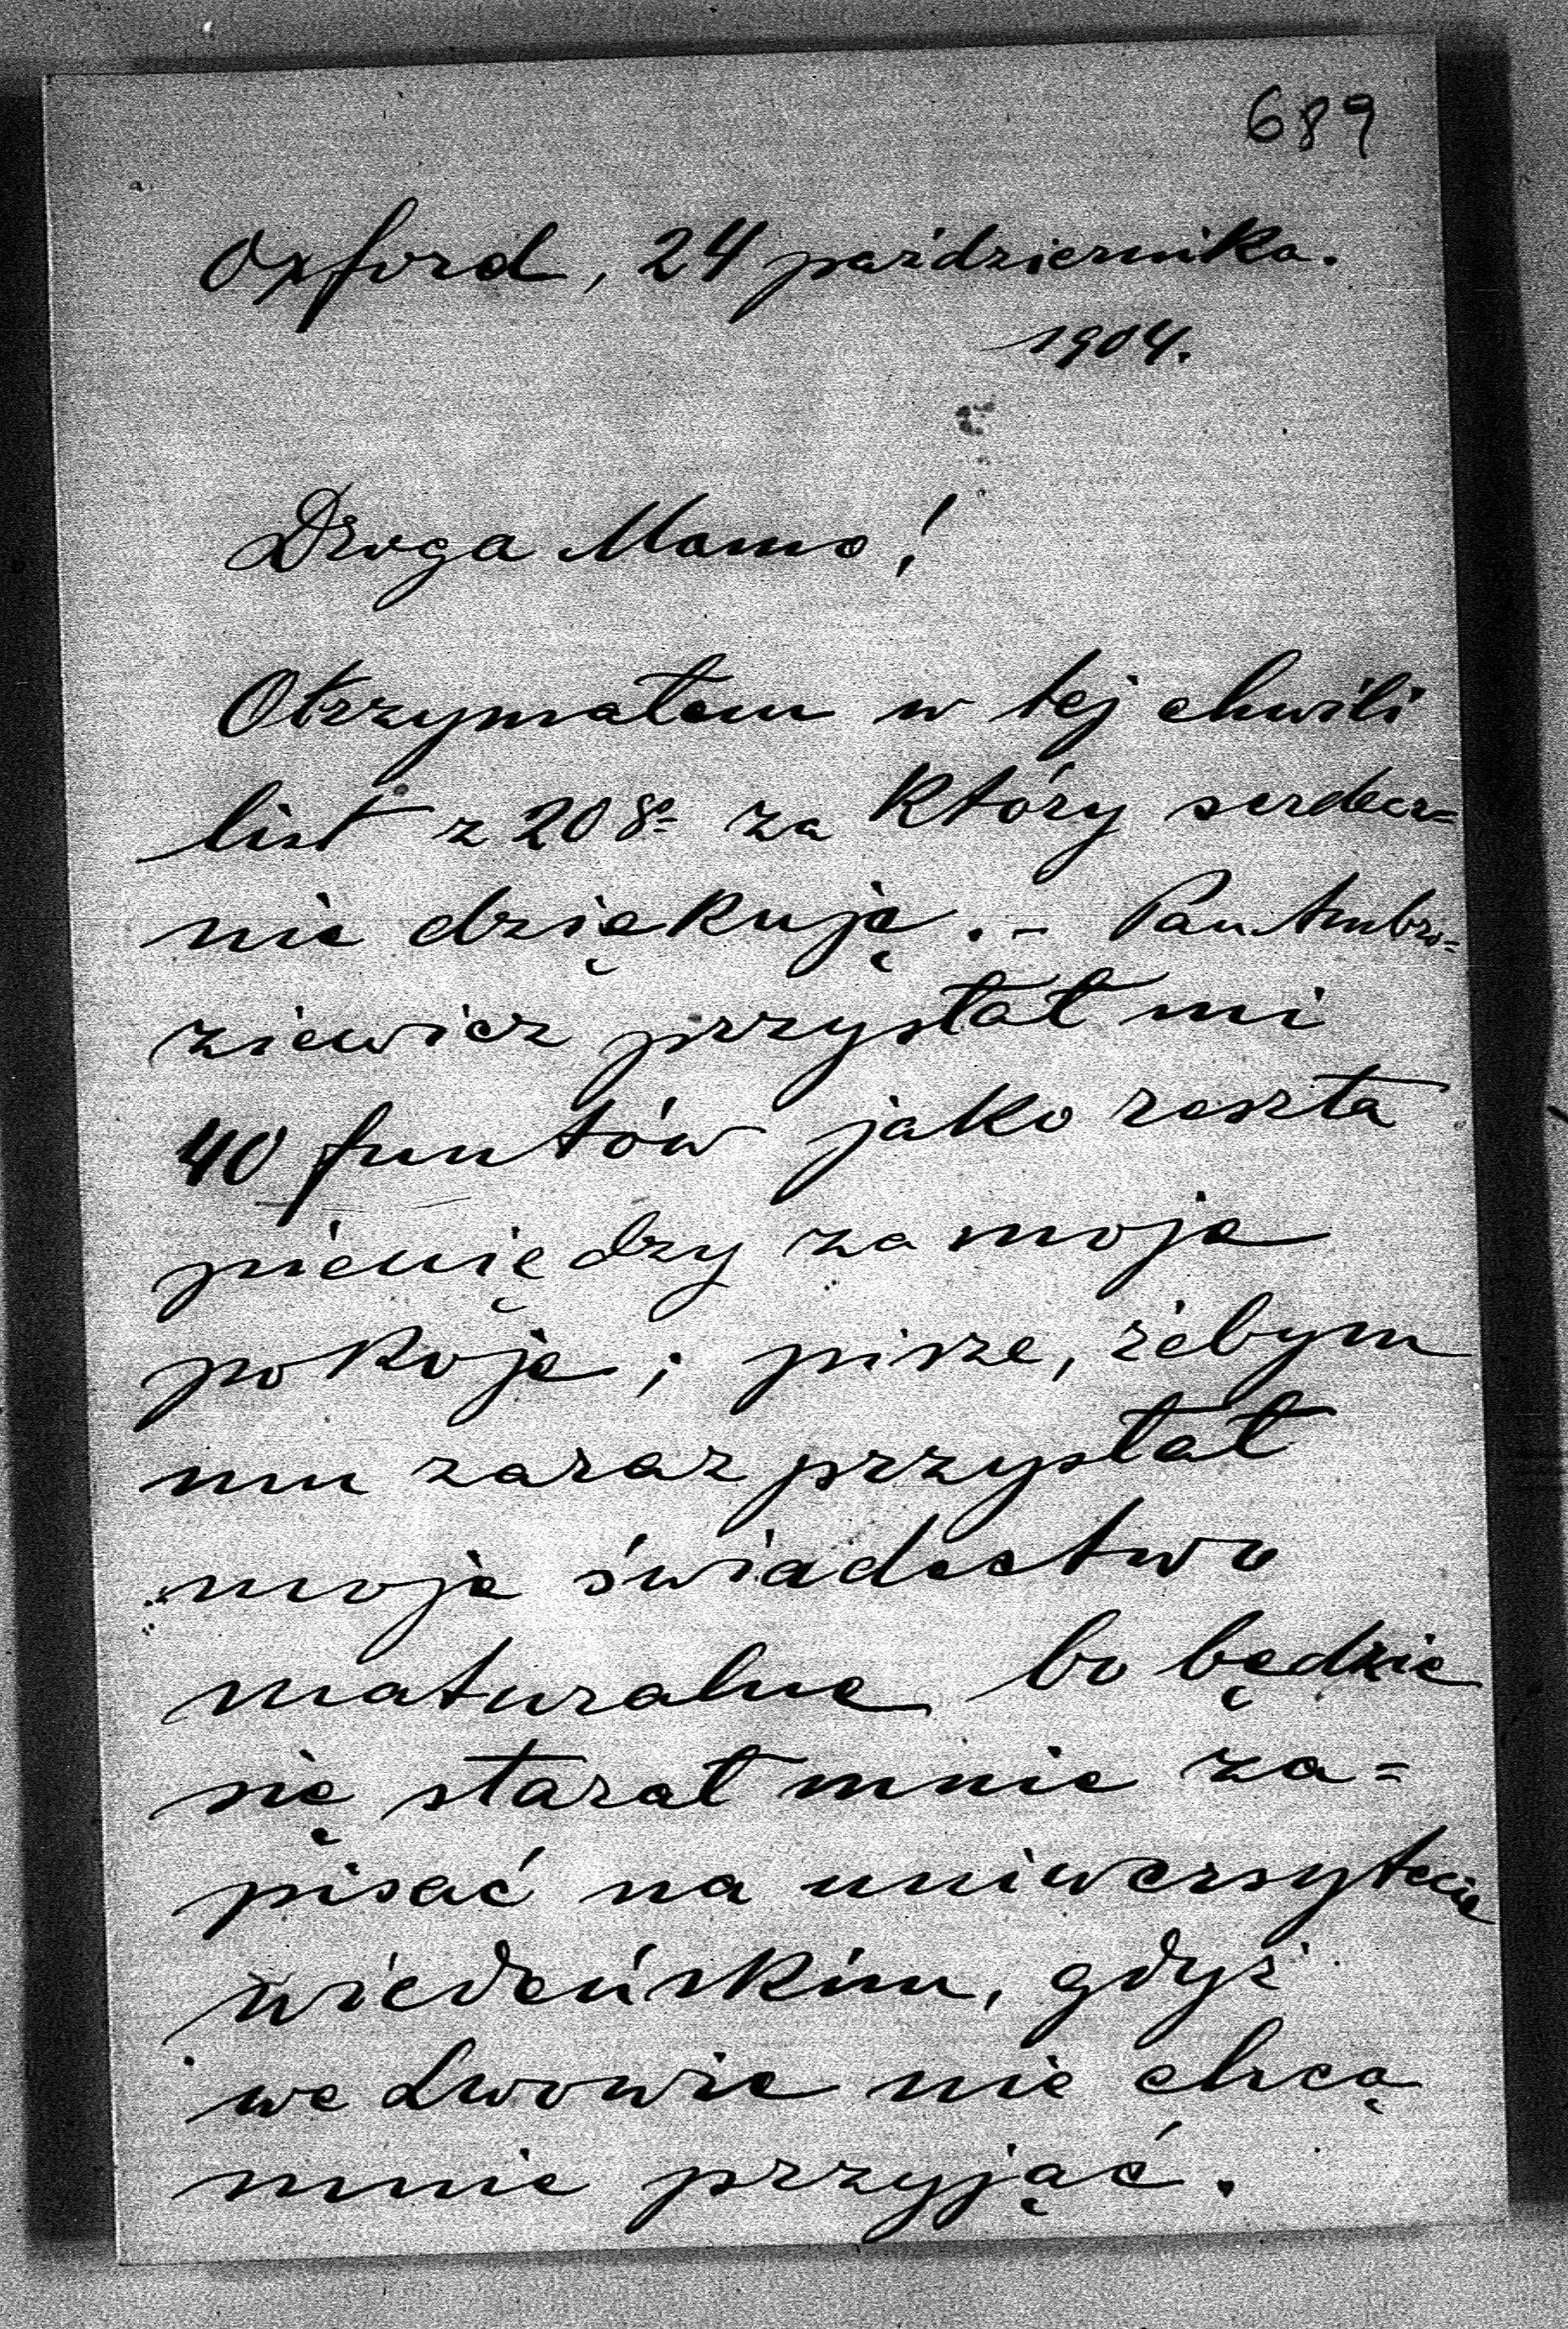 689
Oxford, 24 października.
1904.
Droga Mamo!
Otrzymałem w tej chwili
list z 20 za który serdecz=
nie dziękuję. – Pan Ambro=
ziewicz przysłał mi
40 funtów jako reszta
pieniędzy za moje
pokoje; pisze, żebym
mu zaraz przysłał
moje świadectwo
maturalne bo będzie
się starał mnie za=
pisać na uniwersytecie
wiedeńskim, gdyż
we Lwowie nie chcą
mnie przyjąć.